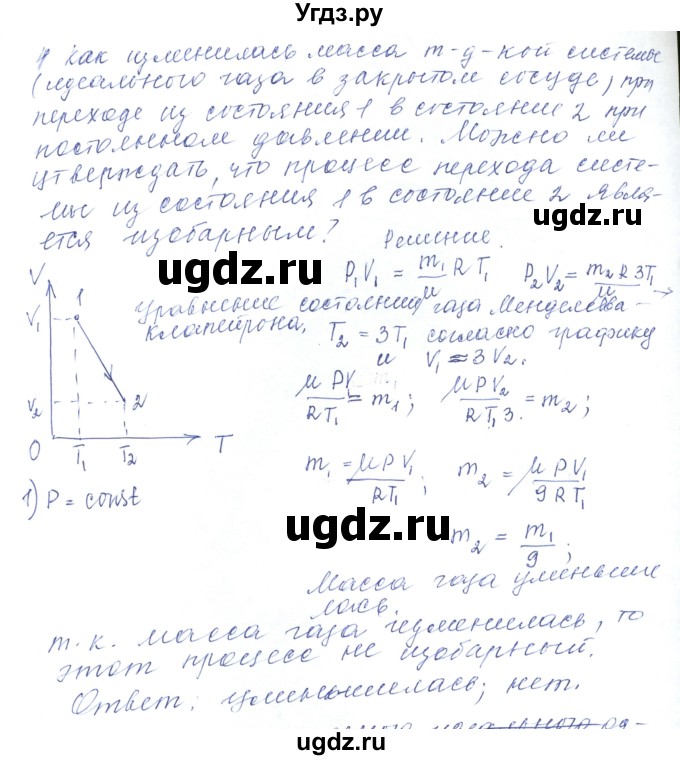 Угдз.ру
Как изменилась масса т-д-кой системы
(идеального газа в закрытом сосуде) при
переходе из состояния 1 в состояние 2 при
постоянном давлении. Можно ли
утверждать, что процесс перехода систе-
мы из состояния 1 в состояние 2 явля-
ется изобарным?
Решение.
P₁V₁ = m₁/μ R T₁   P₂V₂ = m₂ R 3T₁/μ →
Уравнение состояния газа Менделеева -
Клапейрона, T₂ = 3T₁ согласно графику
и V₁ = 3V₂.
V
V₁
1
V₂
2
O T₁ T₂ T
μPV/RT₁ = m₁;   μPV₂/RT₁3 = m₂;
1) P = const
m₁ = μPV₁/RT₁;   m₂ = μPV₁/9RT₁
m₂ = m₁/9;
Масса газа уменьши
лась.
т.к. масса газа изменилась, то
этот процесс не изобарный.
Ответ: уменьшилась; нет.
ugdz.ru
ugdz.ru
ugdz.ru
ugdz.ru